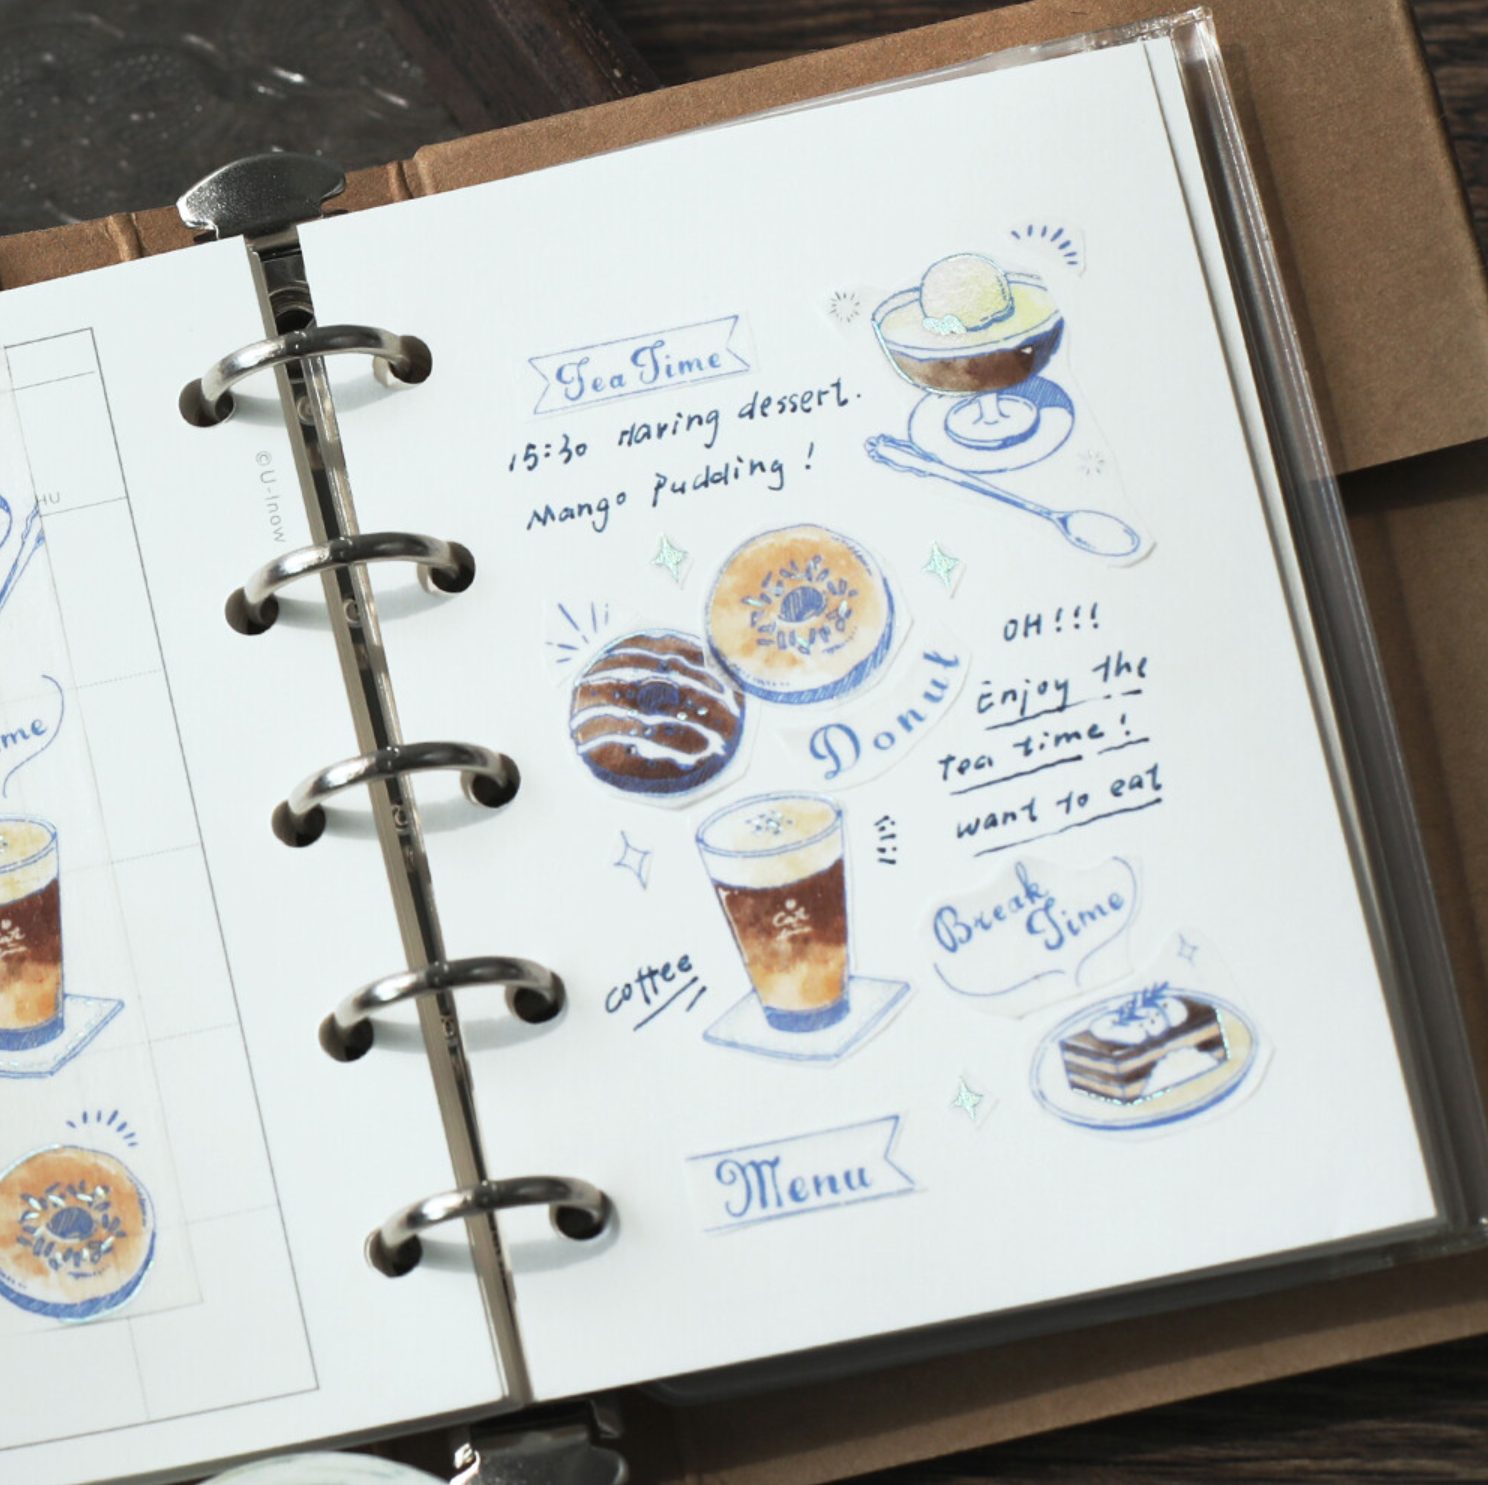 HU
©U-Inow
me
Tea Time
15:30 Having dessert.
Mango Pudding!
Donut
OH!!!
Enjoy the
Tea time!
want to eat
Café
coffee
Break
Time
Menu